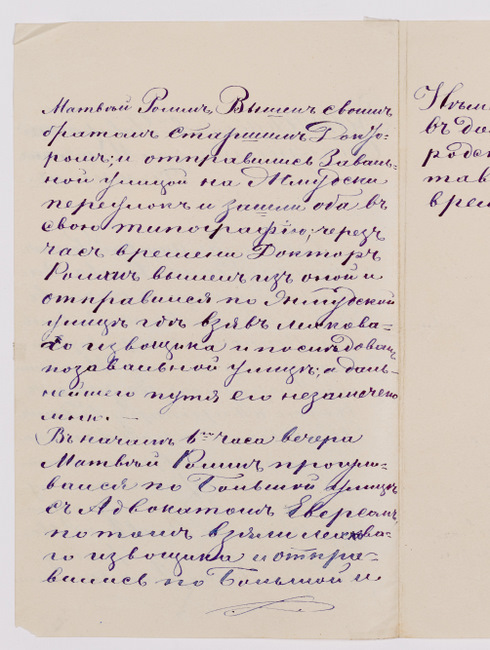 Матвѣй Роммъ, Вышелъ своимъ
братомъ старшимъ Докто-
ромъ; и отправились Заваль-
ной улицой на Жмудски
переулокъ и зашли оба въ
свою типографію; черезъ
часъ времени Докторъ
Роммъ вышелъ изъ оной и
отправился по Жмудской
улицѣ гдѣ взявъ легкова-
го извощика и последовалъ
позавальной улицѣ, а даль-
нейшего путя его незамечено
мнѣ. —
Въ началѣ 6го часа вечера
Матвѣй Роммъ прогули-
вался по Большой улицѣ
съ Адвокатомъ
потомъ взяли легкова-
го извощика и отпра-
вились по Большой и
въ
родск
врем